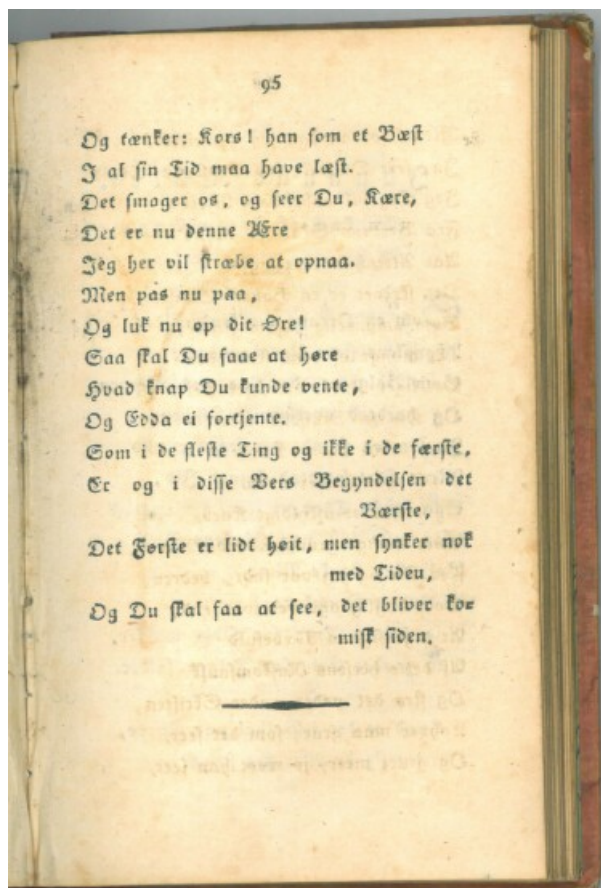 95
Og tænker: Kors! han som et Bæst
I al sin Tid maa have læst.
Det smager os, og seer Du, Kære,
Det er nu denne Ære
Jeg her vil stræbe at opnaa.
Men pas nu paa,
Og luk nu op dit Øre!
Saa skal Du faae at høre
Hvad knap Du kunde vente,
Og Edda ei fortjente.
Som i de fleste Ting og ikke i de færste,
Er og i disse Vers Begyndelsen det
Værste,
Det Første er lidt høit, men synker nok
med Tideu,
Og Du skal faa at see, det bliver ko=
misk siden.